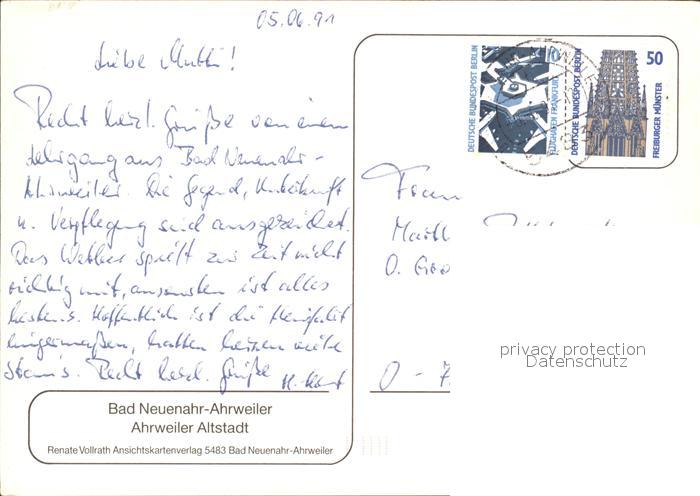 05.06.91
Liebe Mutti!
Recht herzl. Grüße von einem
Lehrgang aus Bad Neuenahr-
Ahrweiler. Die Gegend, Unterkunft
u. Verpflegung sind ausgezeichnet.
Das Wetter spielt zur Zeit nicht
richtig mit, ansonsten ist alles
bestens. Hoffentlich ist die Heimfahrt
hatten keinen
Recht herzl. Grüße
Bad Neuenahr-Ahrweiler
Ahrweiler Altstadt
Renate Vollrath Ansichtskartenverlag 5483 Bad Neuenahr-Ahrweiler
DEUTSCHE BUNDESPOST BERLIN
10
FLUGHAFEN FRANKFURT
DEUTSCHE BUNDESPOST BERLIN
50
FREIBURGER MÜNSTER
Frau
O - 7
privacy protection
Datenschutz